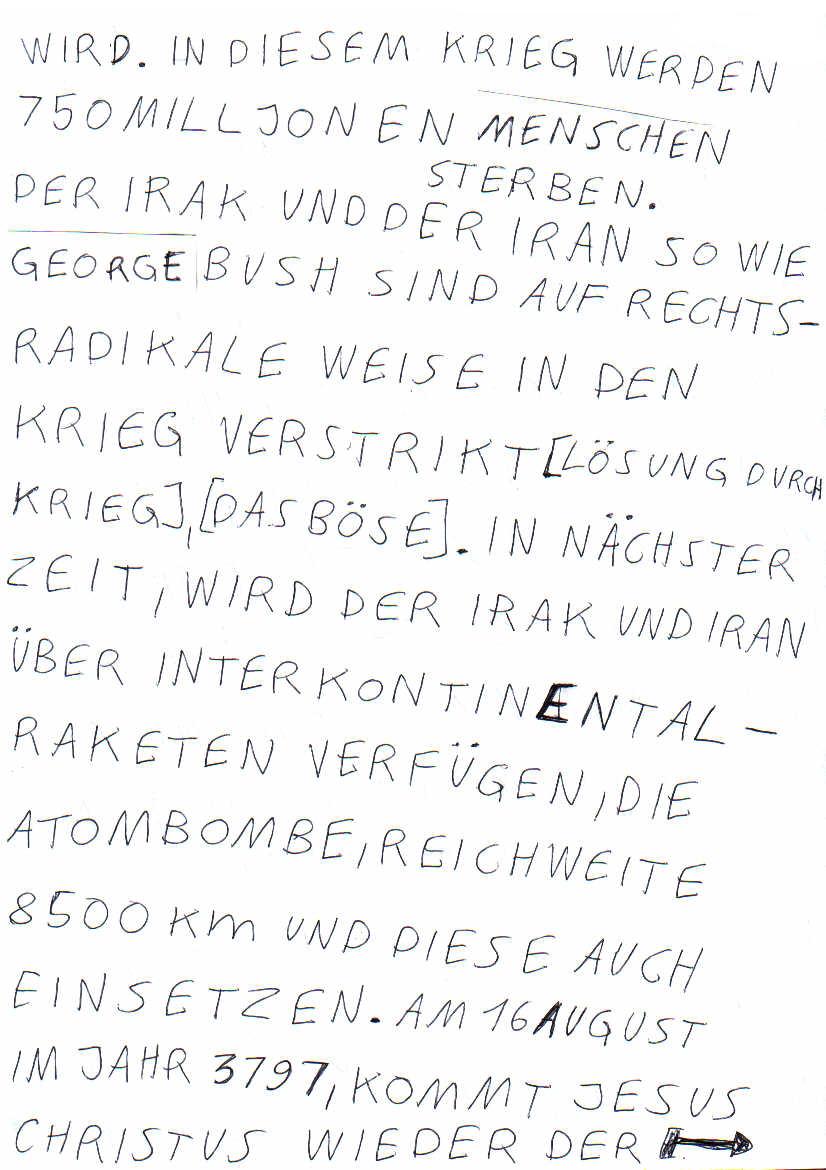 WIRD. IN DIESEM KRIEG WERDEN
750 MILLJONEN MENSCHEN
STERBEN.
DER IRAK UND DER IRAN SO WIE
GEORGE BUSH SIND AUF RECHTS-
RADIKALE WEISE IN DEN
KRIEG VERSTRIKT [LÖSUNG DURCH
KRIEG], [DAS BÖSE]. IN NÄCHSTER
ZEIT, WIRD DER IRAK UND IRAN
ÜBER INTERKONTINENTAL-
RAKETEN VERFÜGEN, DIE
ATOMBOMBE, REICHWEITE
8500 Km UND DIESE AUCH
EINSETZEN. AM 16 AUGUST
IM JAHR 3797, KOMMT JESUS
CHRISTUS WIEDER DER